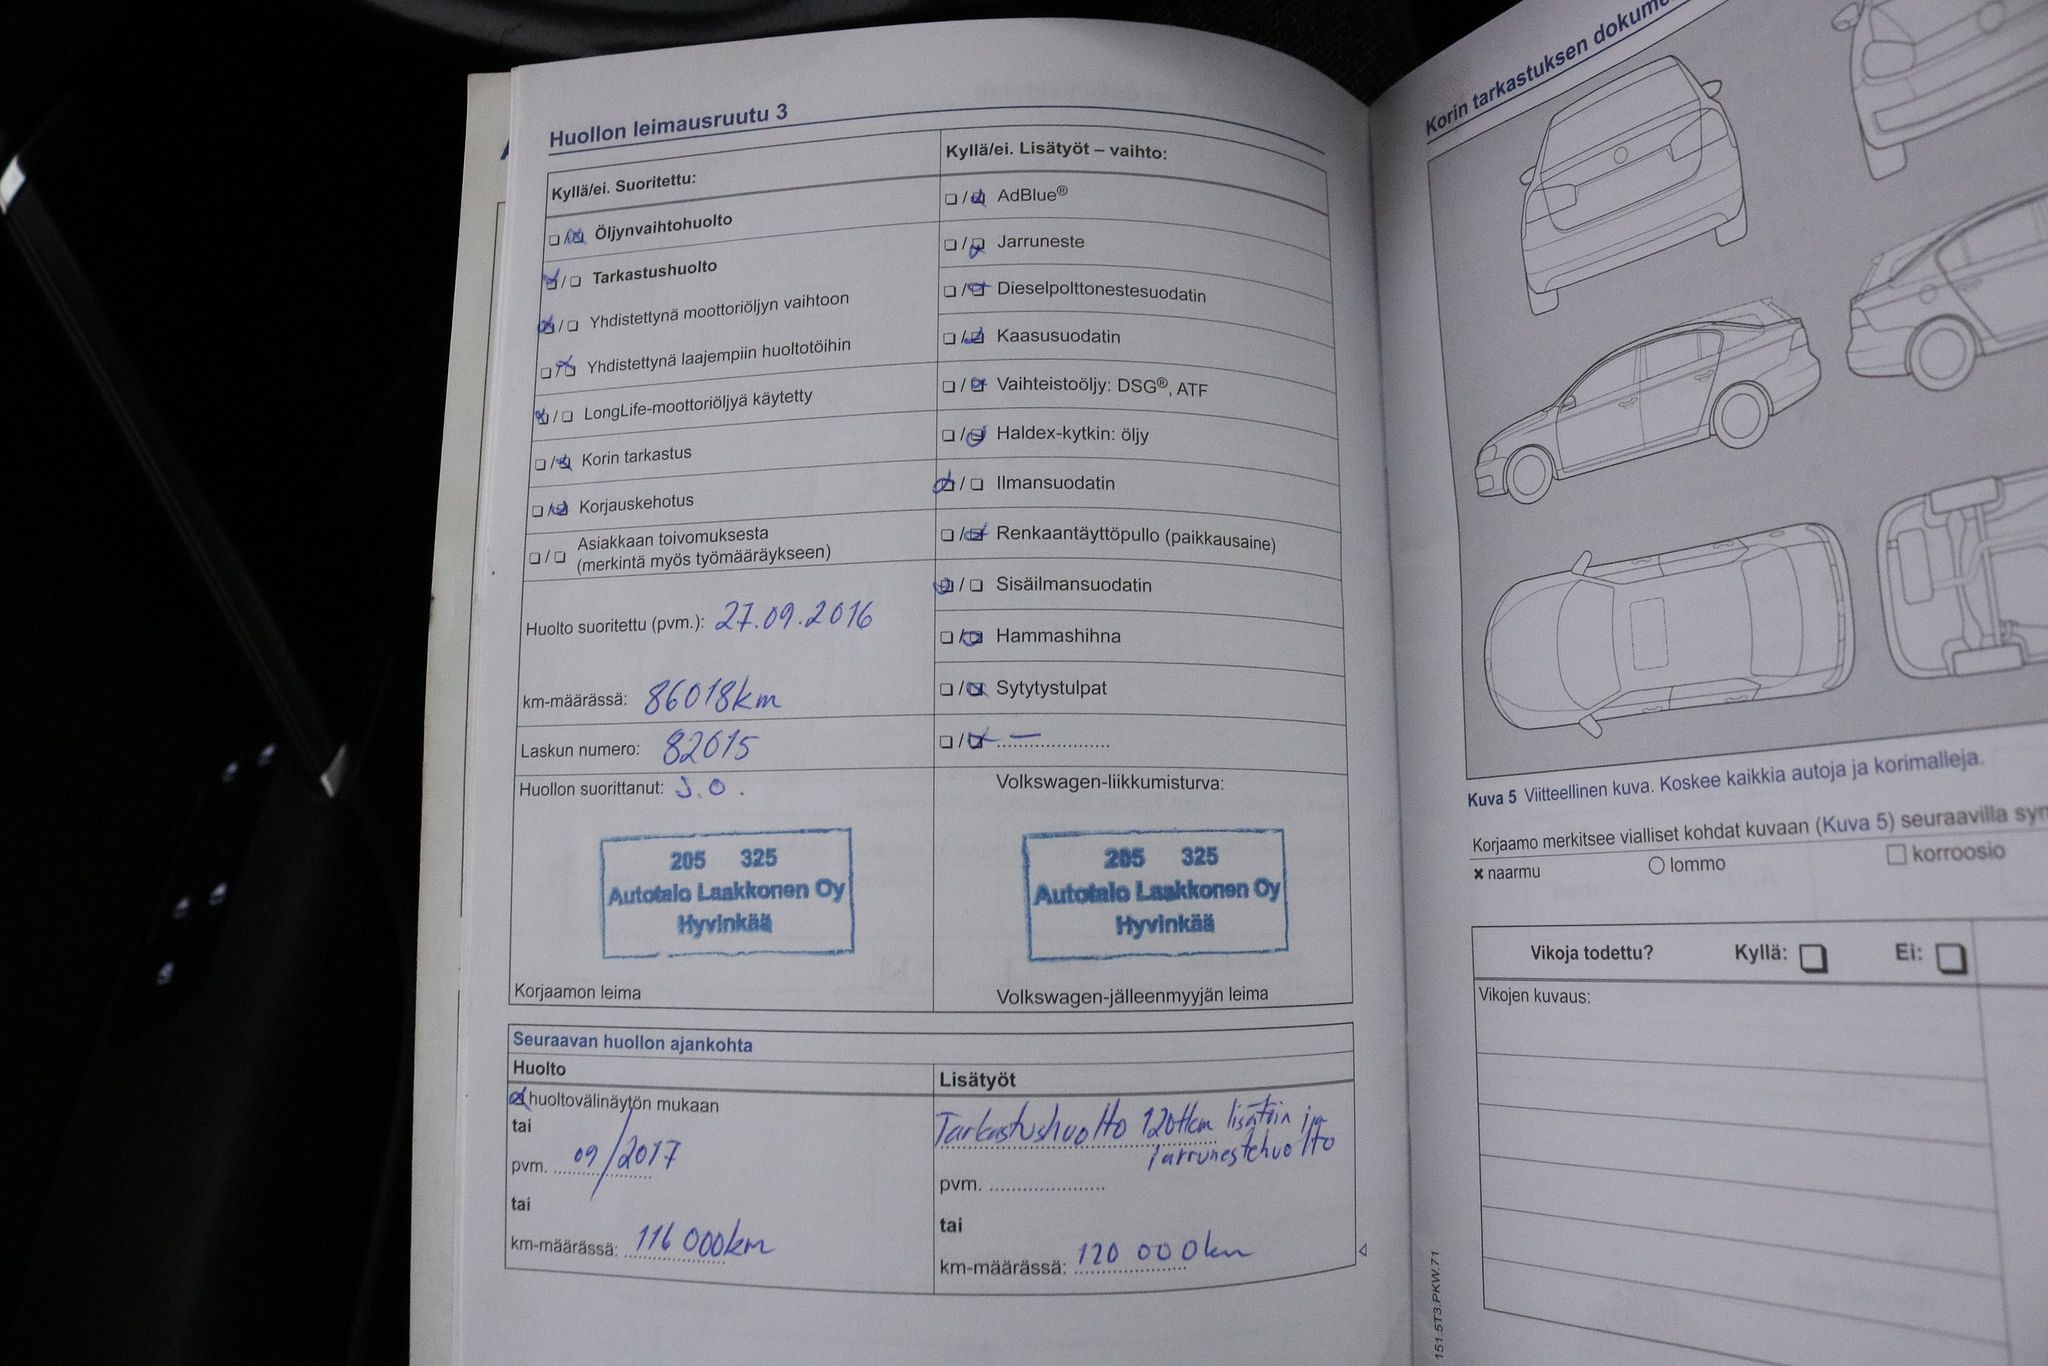 Huollon leimausruutu 3
Kyllä/ei. Suoritettu:
Öljynvaihtohuolto
Tarkastushuolto
Yhdistettynä moottoriöljyn vaihtoon
Yhdistettynä laajempiin huoltotöihin
LongLife-moottoriöljyä käytetty
Korin tarkastus
Korjauskehotus
Asiakkaan toivomuksesta
(merkintä myös työmääräykseen)
Huolto suoritettu (pvm.): 27.09.2016
km-määrässä: 86018km
Laskun numero: 82015
Huollon suorittanut: J.O.
205 325
Autotalo Laakkonen Oy
Hyvinkää
Korjaamon leima
Kyllä/ei. Lisätyöt – vaihto:
AdBlue®
Jarruneste
Dieselpolttonestesuodatin
Kaasusuodatin
Vaihteistoöljy: DSG®, ATF
Haldex-kytkin: öljy
Ilmansuodatin
Renkaantäyttöpullo (paikkausaine)
Sisäilmansuodatin
Hammashihna
Sytytystulpat
Volkswagen-liikkumisturva:
205 325
Autotalo Laakkonen Oy
Hyvinkää
Volkswagen-jälleenmyyjän leima
Seuraavan huollon ajankohta
Huolto
huoltovälinäytön mukaan
tai
pvm. 09/2017
tai
km-määrässä: 116 000km
Lisätyöt
Tarkastushuolto 120tkm lisätöin ja
Jarrunestehuolto
pvm.
tai
km-määrässä: 120 000km
Korin tarkastuksen
Kuva 5 Viitteellinen kuva. Koskee kaikkia autoja ja korimalleja.
Korjaamo merkitsee vialliset kohdat kuvaan (Kuva 5) seuraavilla
× naarmu
lommo
korroosio
Vikoja todettu? Kyllä: Ei:
Vikojen kuvaus:
151.5T3.PKW.71